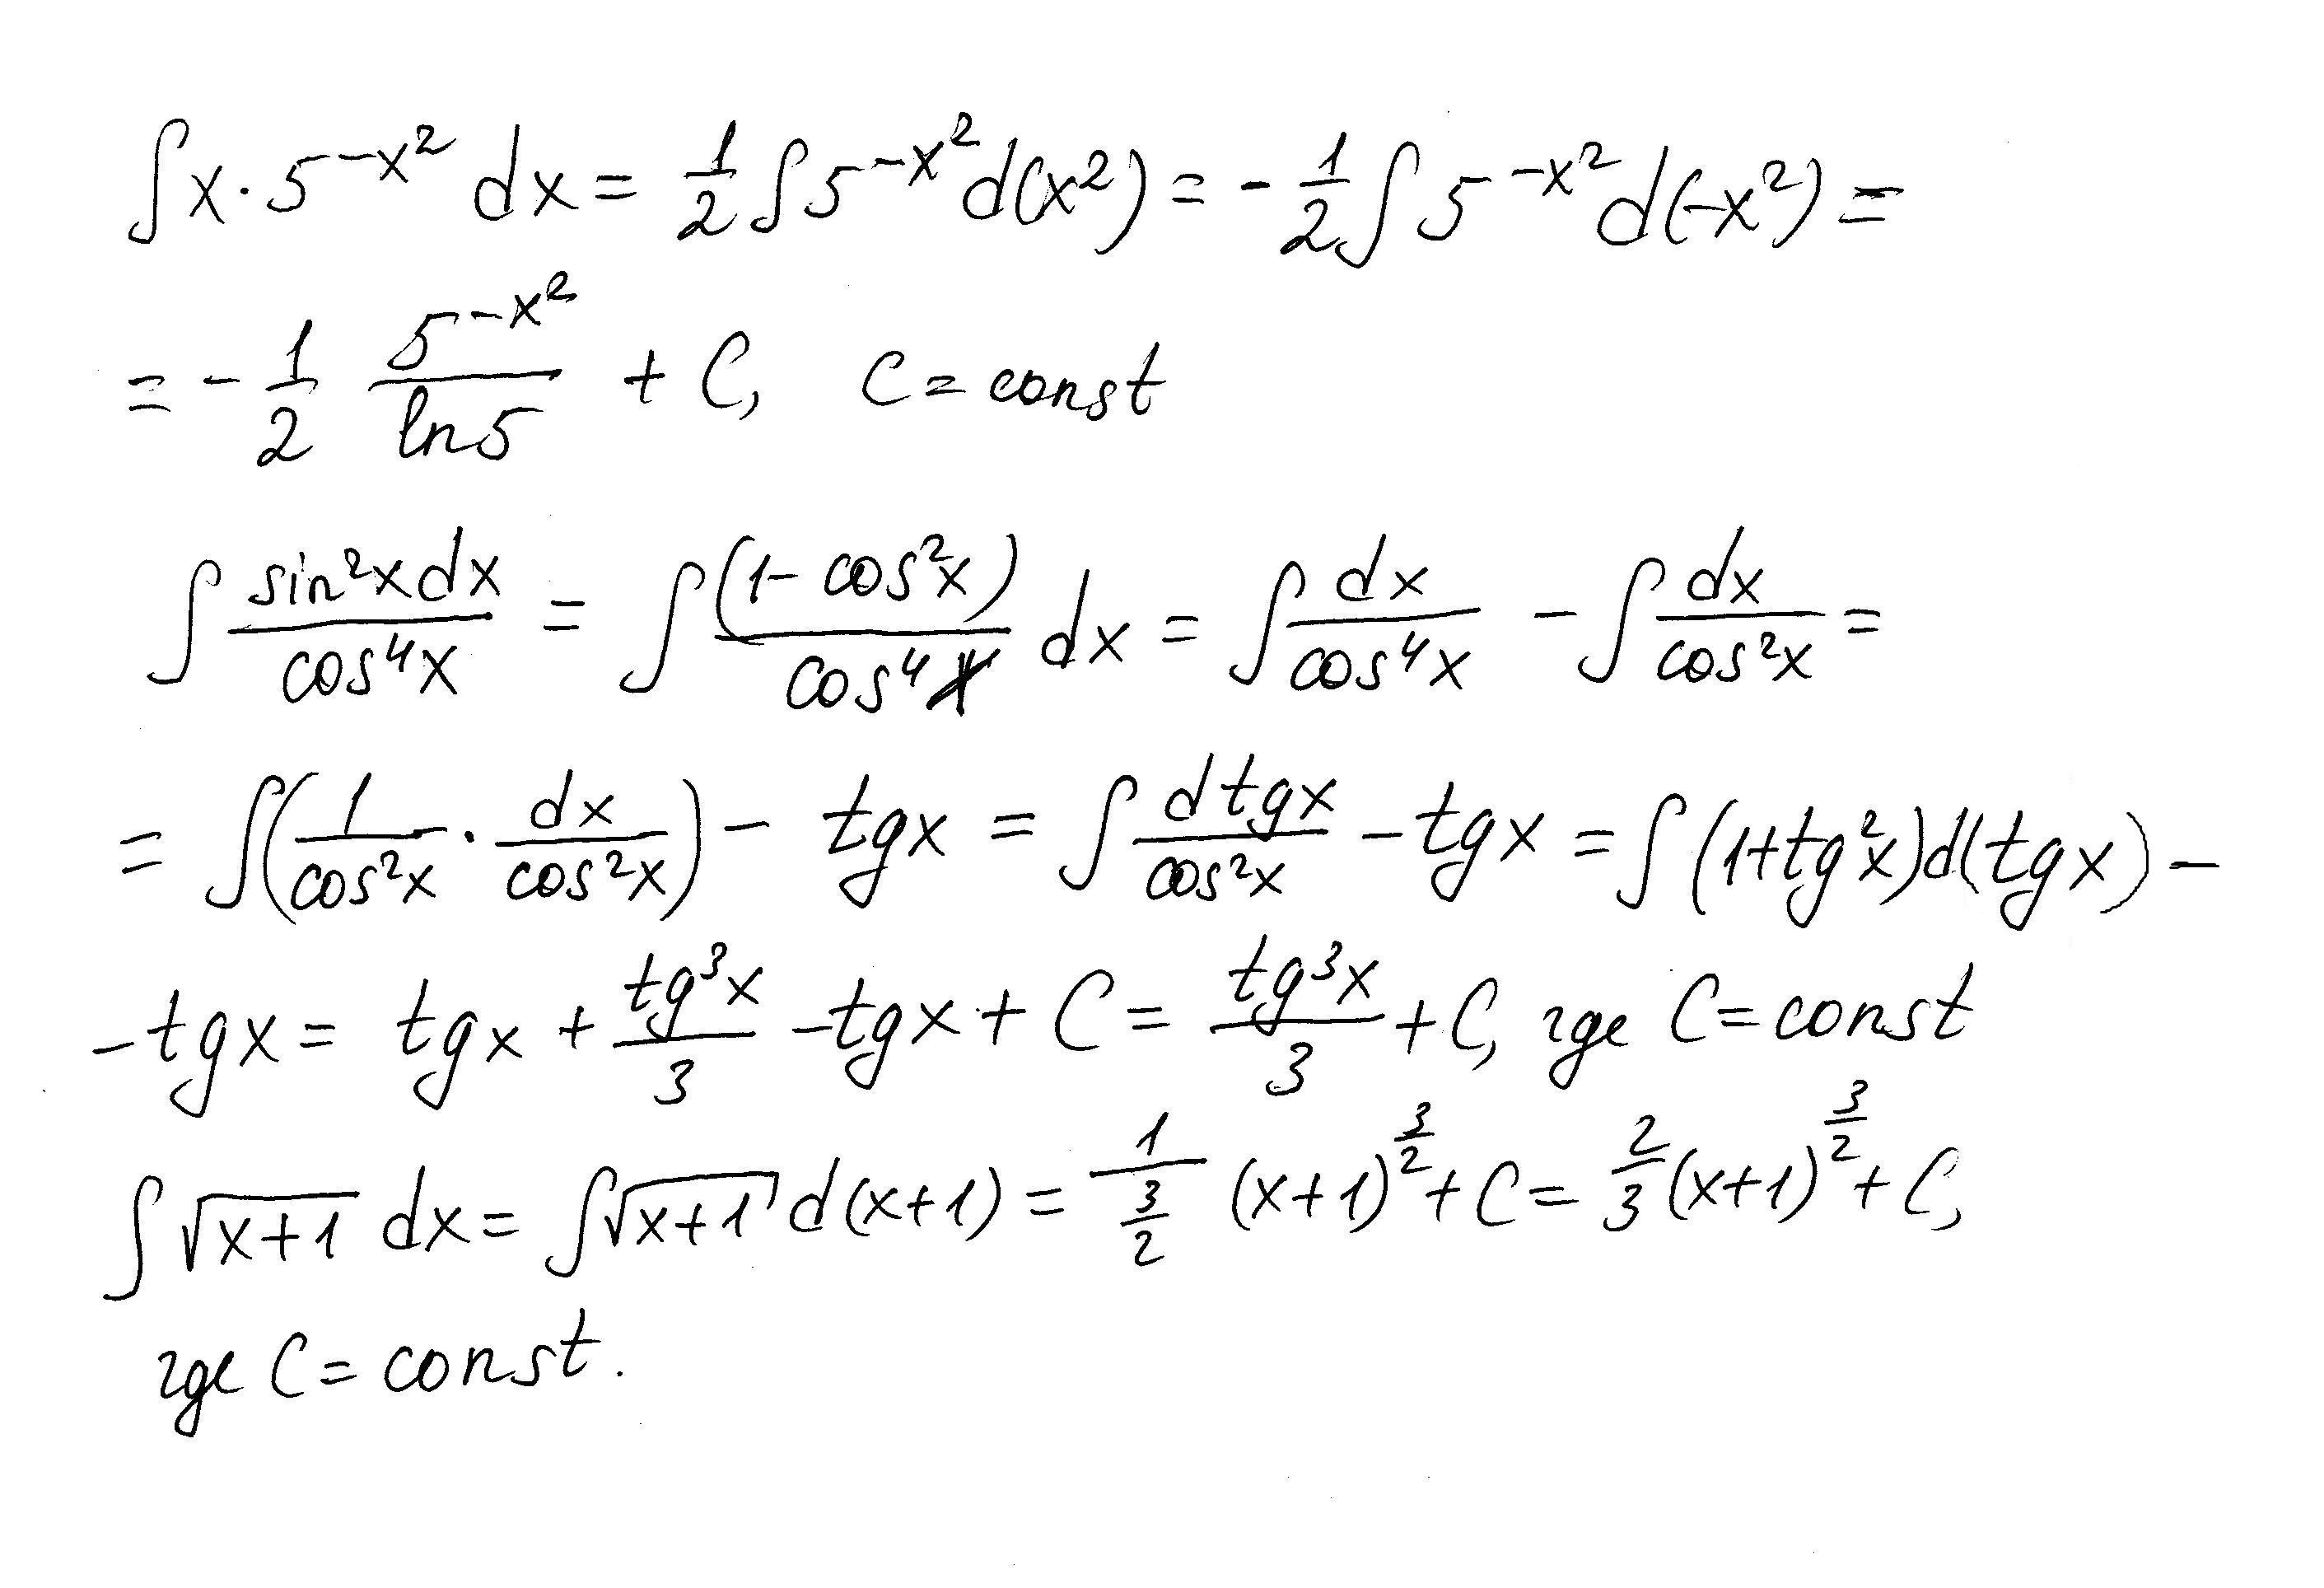 ∫x·5^{-x^2} dx = \frac{1}{2} ∫5^{-x^2} d(x^2) = -\frac{1}{2} ∫5^{-x^2} d(-x^2) =
= -\frac{1}{2} \frac{5^{-x^2}}{ln5} + C, C = const
∫\frac{sin^2x dx}{cos^4x} = ∫\frac{(1-cos^2x)}{cos^4x} dx = ∫\frac{dx}{cos^4x} - ∫\frac{dx}{cos^2x} =
= ∫(\frac{1}{cos^2x} · \frac{dx}{cos^2x}) - tgx = ∫\frac{d tgx}{cos^2x} - tgx = ∫(1+tg^2x)d(tgx) -
- tgx = tgx + \frac{tg^3x}{3} - tgx + C = \frac{tg^3x}{3} + C, где C = const
∫\sqrt{x+1} dx = ∫\sqrt{x+1} d(x+1) = \frac{1}{\frac{3}{2}} (x+1)^{\frac{3}{2}} + C = \frac{2}{3}(x+1)^{\frac{3}{2}} + C,
где C = const.